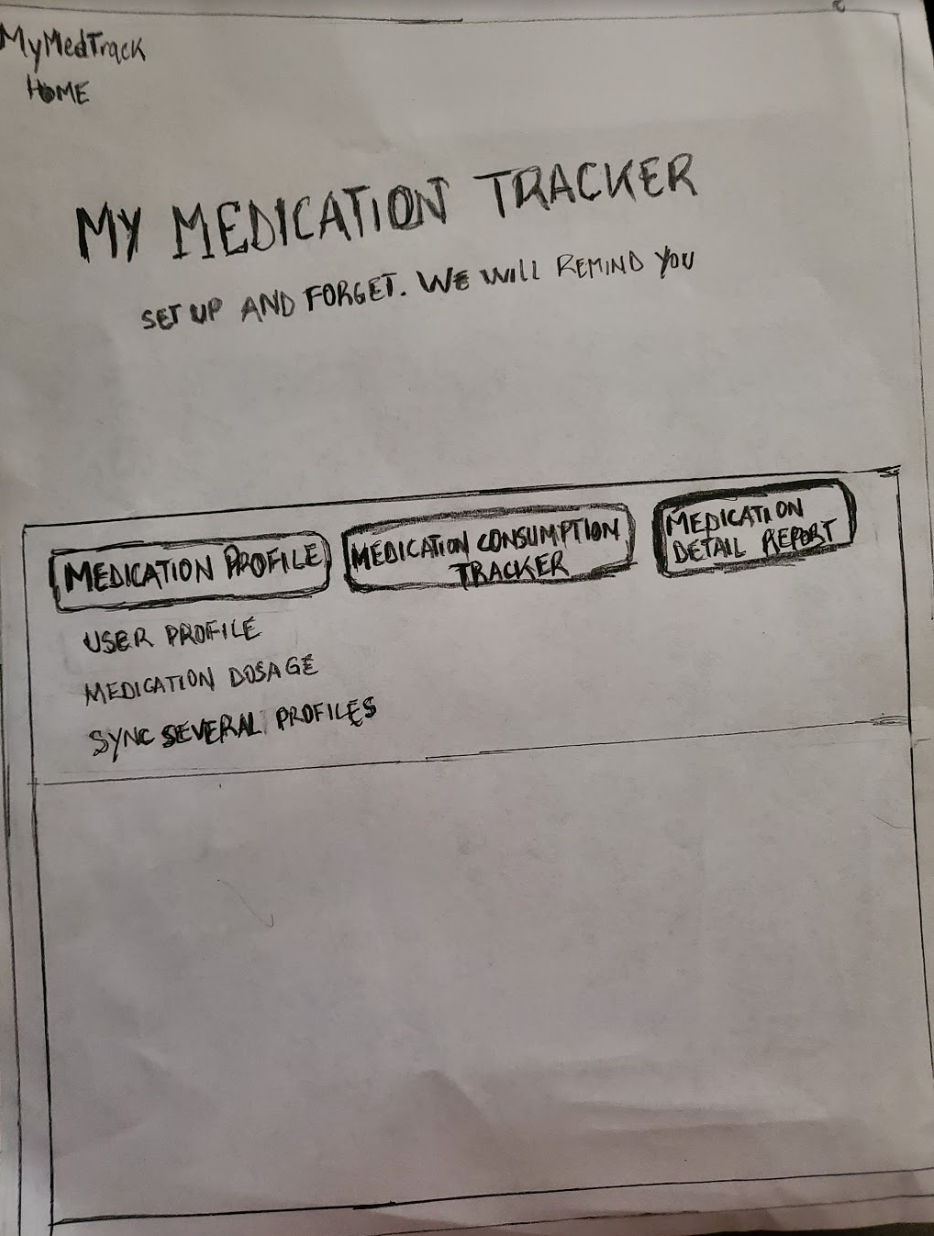 MyMedTrack
HOME
MY MEDICATION TRACKER
SET UP AND FORGET. WE WILL REMIND YOU
MEDICATION PROFILE
MEDICATION CONSUMPTION
TRACKER
MEDICATION
DETAIL REPORT
USER PROFILE
MEDICATION DOSAGE
SYNC SEVERAL PROFILES